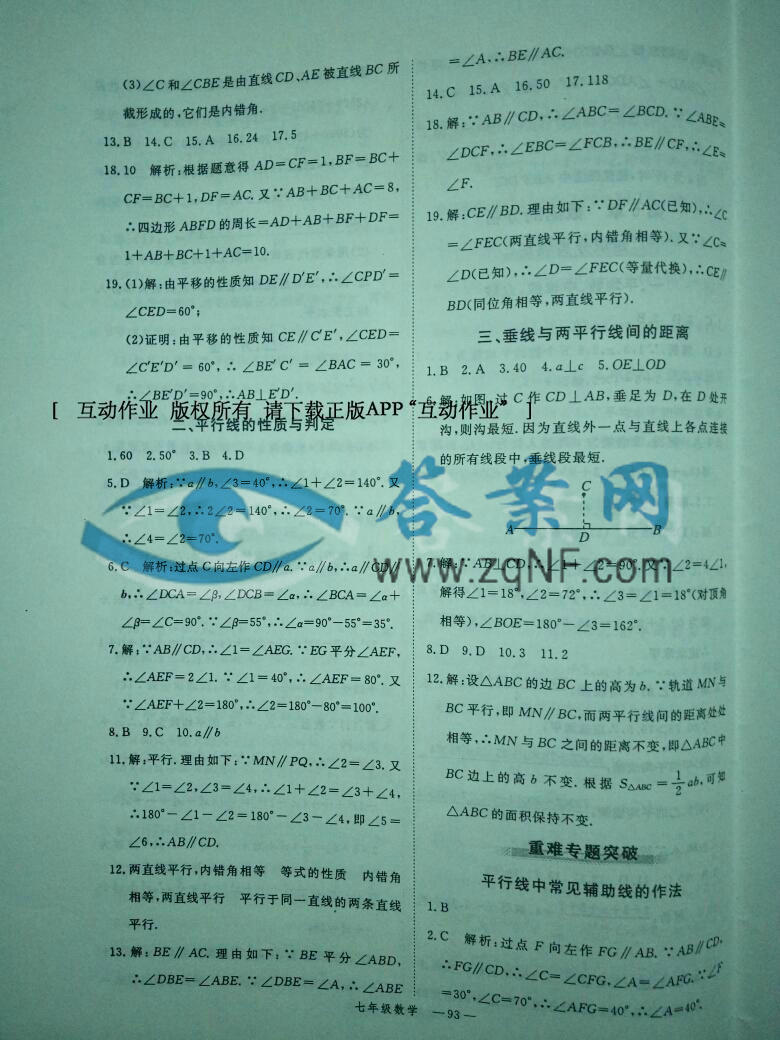 (3)∠C和∠CBE是由直线CD、AE被直线BC所
截形成的,它们是内错角.
13.B 14.C 15.A 16.24 17.5
18.10 解析:根据题意得AD=CF=1,BF=BC+
CF=BC+1,DF=AC.又∵AB+BC+AC=8,
∴四边形ABFD的周长=AD+AB+BF+DF=
1+AB+BC+1+AC=10.
19.(1)解:由平移的性质知DE∥D′E′,∴∠CPD′=
∠CED=60°;
(2)证明:由平移的性质知CE∥C′E′,∠CED=
∠C′E′D′=60°,∴∠BE′C′=∠BAC=30°,
∴∠BE′D′=90°,∴AB⊥E′D′.
二、平行线的性质与判定
1.60 2.50° 3.B 4.D
5.D 解析:∵a∥b,∠3=40°,∴∠1+∠2=140°.又
∵∠1=∠2,∴2∠2=140°,∴∠2=70°.∵a∥b,
∴∠4=∠2=70°.
6.C 解析:过点C向左作CD∥a.∵a∥b,∴a∥CD∥
b,∴∠DCA=∠β,∠DCB=∠α,∴∠BCA=∠α+
∠β=∠C=90°.∵∠β=55°,∴∠α=90°-55°=35°.
7.解:∵AB∥CD,∴∠1=∠AEG.∵EG平分∠AEF,
∴∠AEF=2∠1.∵∠1=40°,∴∠AEF=80°.又
∵∠AEF+∠2=180°,∴∠2=180°-80°=100°.
8.B 9.C 10.a∥b
11.解:平行.理由如下:∵MN∥PQ,∴∠2=∠3.又
∵∠1=∠2,∠3=∠4,∴∠1+∠2=∠3+∠4,
∴180°-∠1-∠2=180°-∠3-∠4,即∠5=
∠6,∴AB∥CD.
12.两直线平行,内错角相等 等式的性质 内错角
相等,两直线平行 平行于同一直线的两条直线
平行.
13.解:BE∥AC.理由如下:∵BE平分∠ABD,
∴∠DBE=∠ABE.∵∠DBE=∠A,∴∠ABE
=∠A,∴BE∥AC.
14.C 15.A 16.50 17.118
18.解:∵AB∥CD,∴∠ABC=∠BCD.∵∠ABE=
∠DCF,∴∠EBC=∠FCB,∴BE∥CF,∴∠E=
∠F.
19.解:CE∥BD.理由如下:∵DF∥AC(已知),∴∠C
=∠FEC(两直线平行,内错角相等).又∵∠C=
∠D(已知),∴∠D=∠FEC(等量代换),∴CE∥
BD(同位角相等,两直线平行).
三、垂线与两平行线间的距离
1.B 2.A 3.40 4.a⊥c 5.OE⊥OD
6.解:如图,过C作CD⊥AB,垂足为D,在D处开
沟,则沟最短.因为直线外一点与直线上各点连接
的所有线段中,垂线段最短.
C
A D B
7.解:∵AB⊥CD,∴∠1+∠2=90°.又∵∠2=4∠1,
解得∠1=18°,∠2=72°,∴∠3=∠1=18°(对顶角
相等),∠BOE=180°-∠3=162°.
8.D 9.D 10.3 11.2
12.解:设△ABC的边BC上的高为b.∵轨道MN与
BC平行,即MN∥BC,而两平行线间的距离处处
相等,∴MN与BC之间的距离不变,即△ABC中
BC边上的高b不变.根据S△ABC=1/2ab,可知
△ABC的面积保持不变.
重难专题突破
平行线中常见辅助线的作法
1.B
2.C 解析:过点F向左作FG∥AB.∵AB∥CD,
∴FG∥CD,∴∠C=∠CFG,∠A=∠AFG.∵∠F
=30°,∠C=70°,∴∠AFG=40°,∴∠A=40°.
七年级数学 —93—
[ 互动作业 版权所有 请下载正版APP“互动作业” ]
答案网
www.zqNF.com